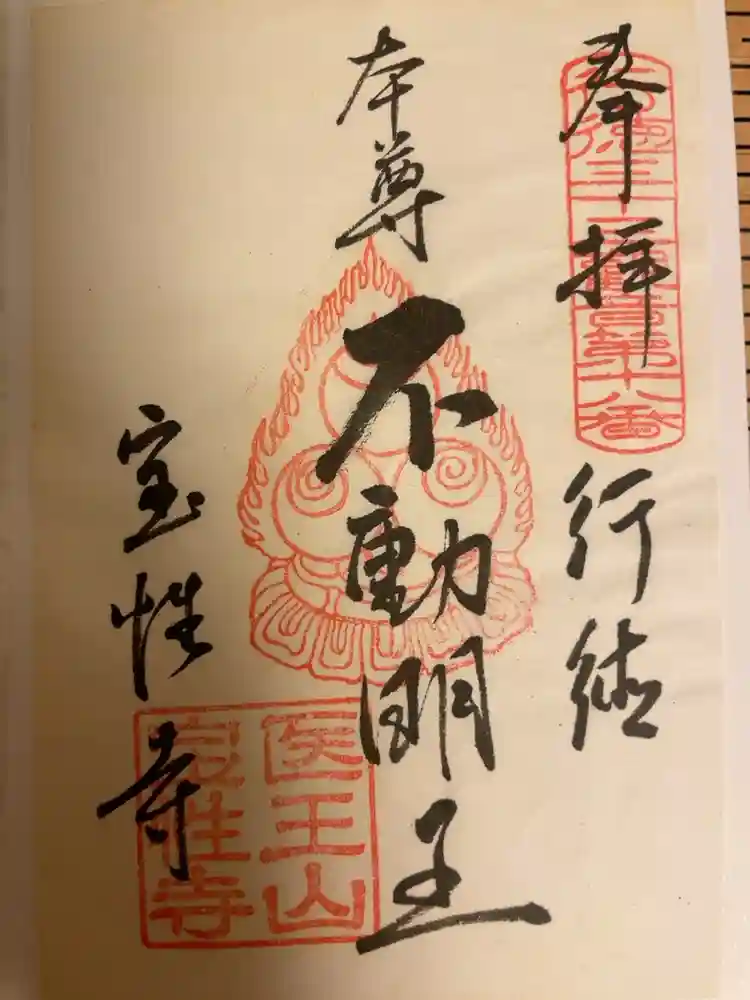 奉拝
行徳三十三観音第十八番
行徳
本尊
不動明王
宝性寺
医王山
宝性寺